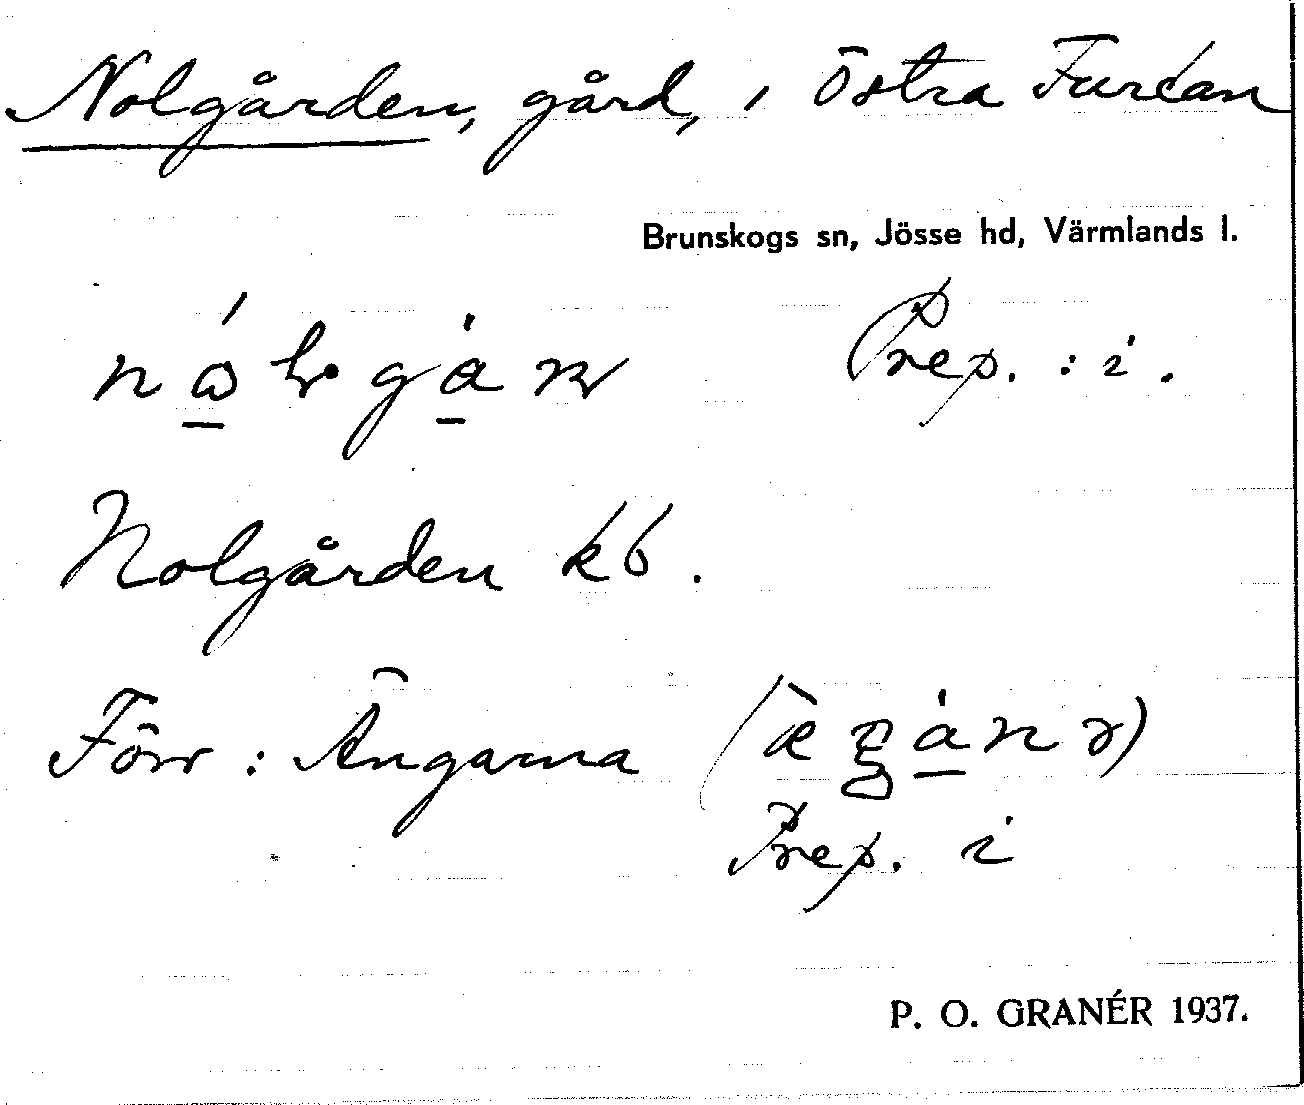 Nolgården, gård, i Östra Furtan
Brunskogs sn, Jösse hd, Värmlands l.
Prep. : i .
Nolgården kb .
Förr : Ängarna
Prep. i
P. O. GRANÉR 1937.